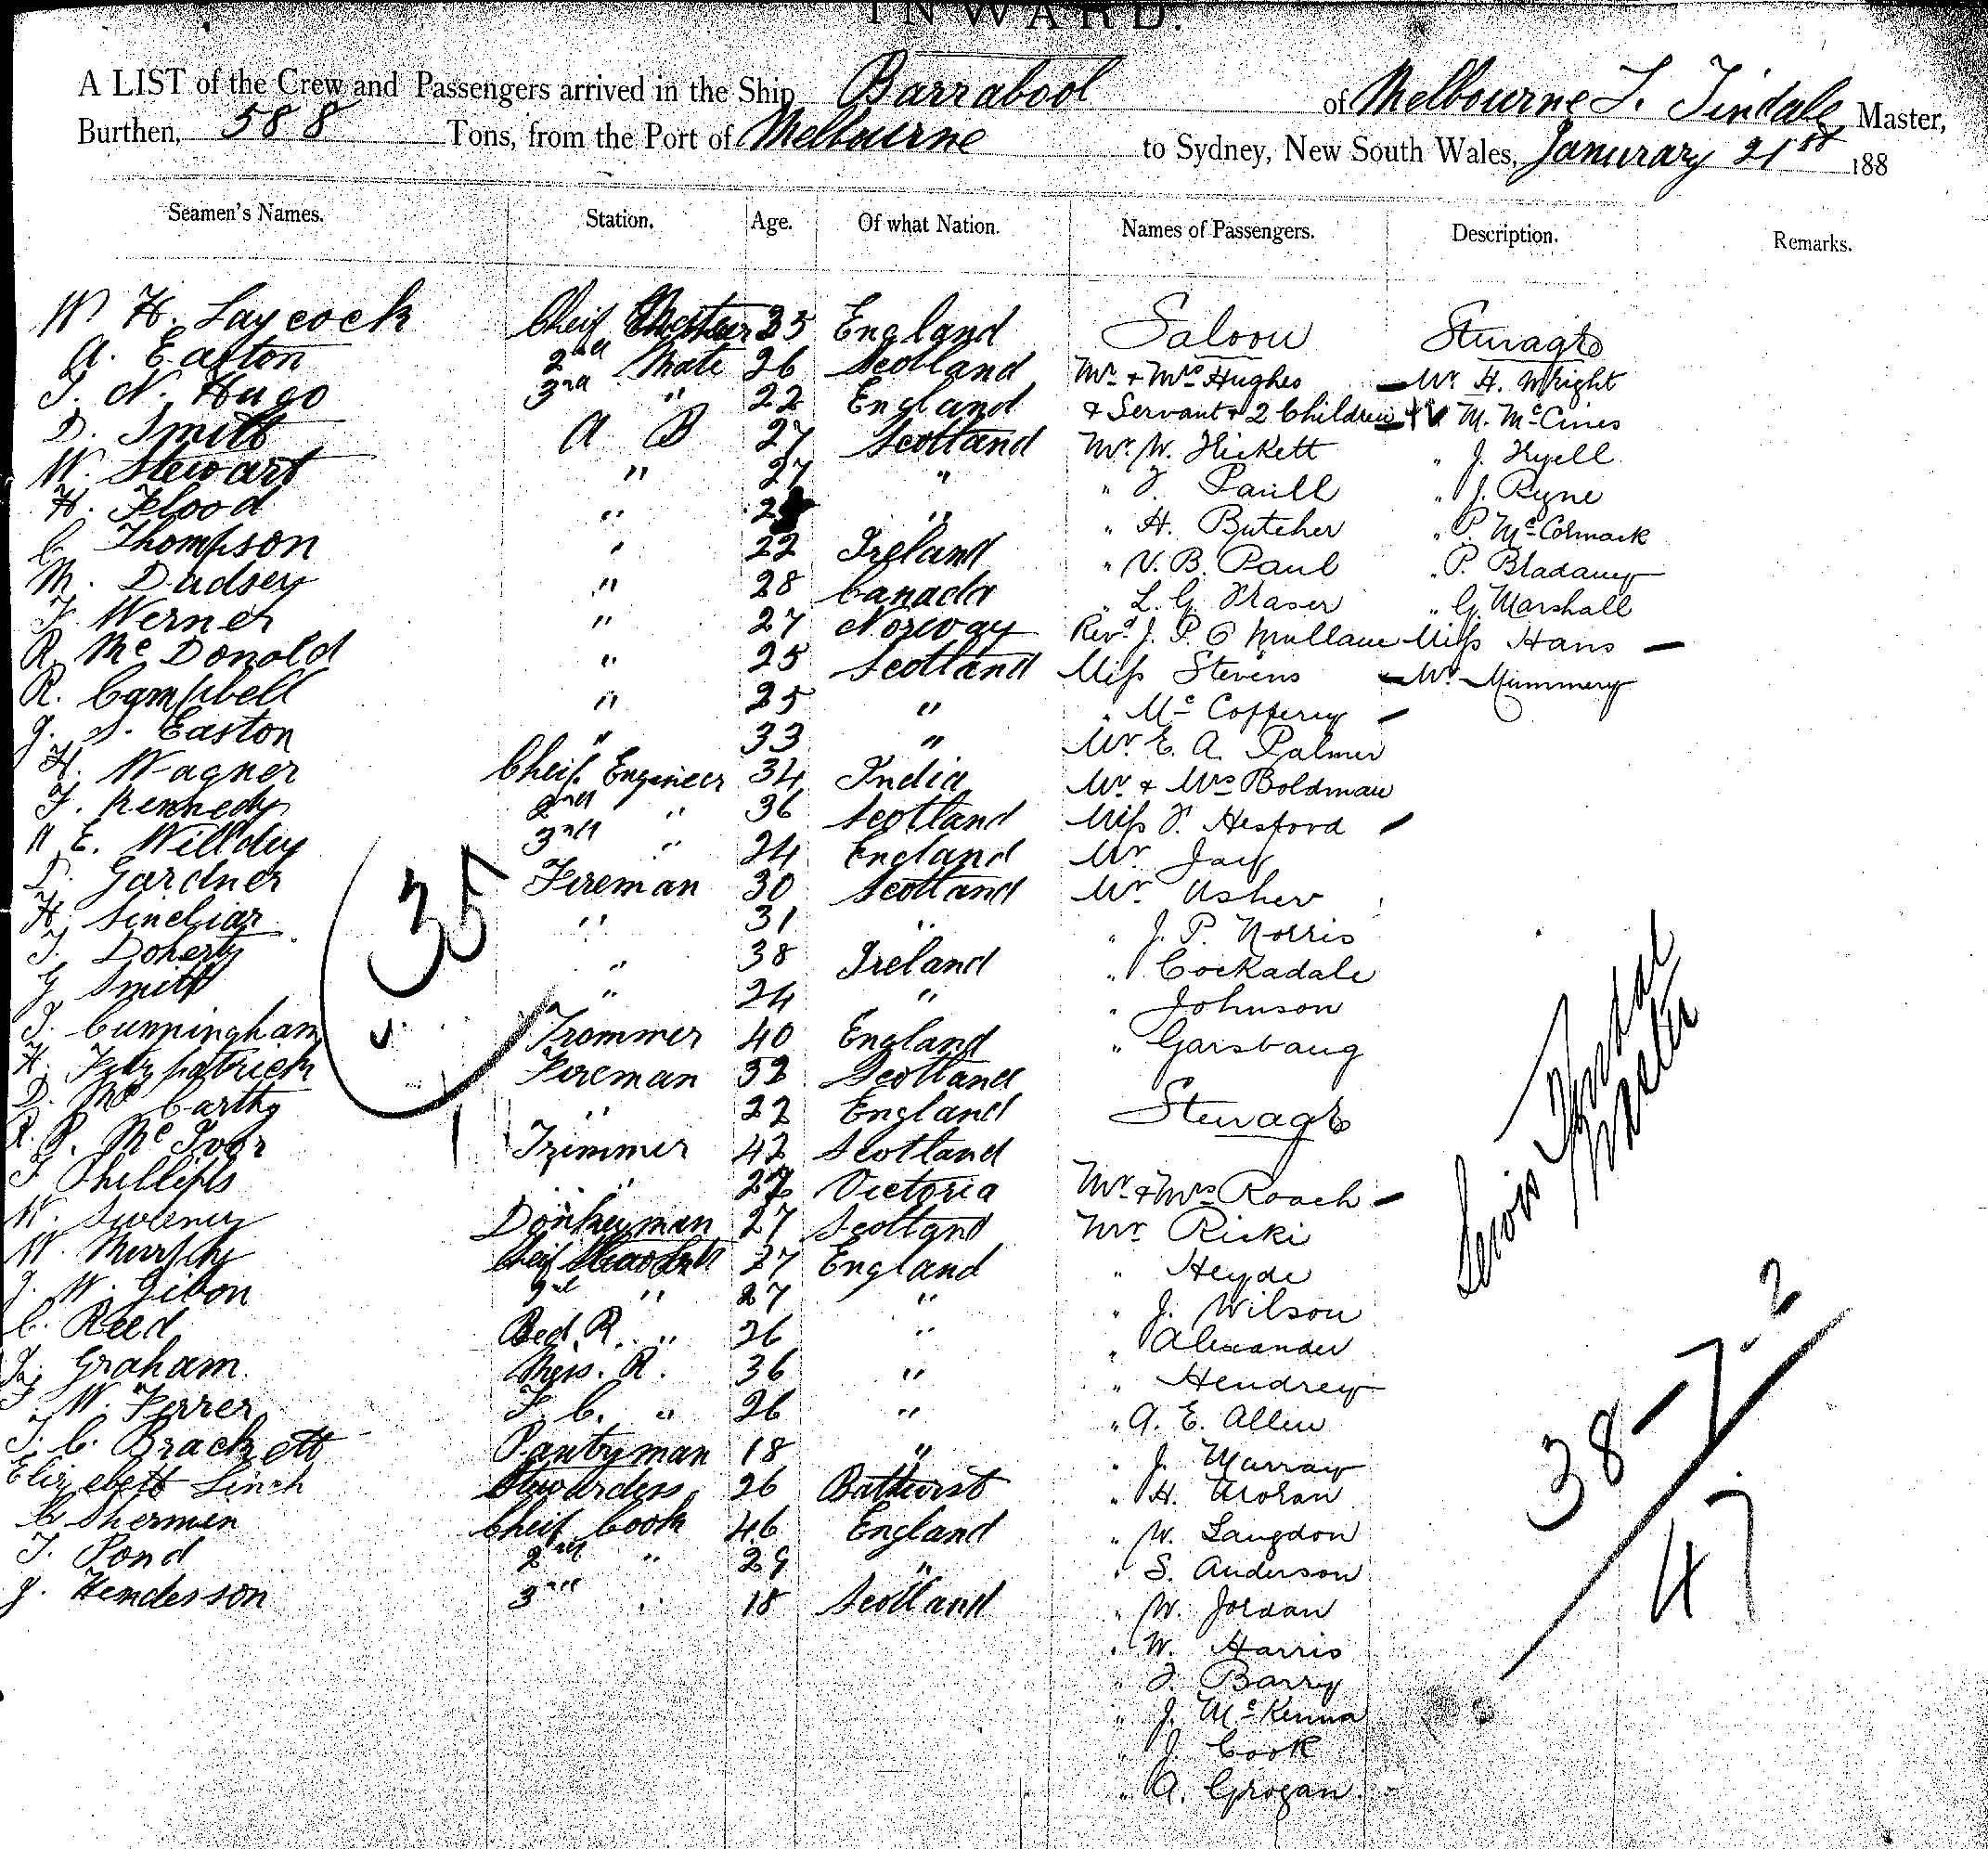 INWARD.
A LIST of the Crew and Passengers arrived in the Ship Barrabool of Melbourne L. Tindale Master,
Burthen, 588 Tons, from the Port of Melbourne to Sydney, New South Wales, Janurary 21st 188
Seamen's Names. Station. Age. Of what Nation. Names of Passengers. Description. Remarks.
W. H. Laycock Cheif 35 England Saloon Sturage
A. Easton 2nd Mate 26 Scotland Mr & Mrs Hughes Mr H. Wright
T. N. Hugo 3rd " 22 England & Servant & 2 Children " M. McCines
D. Smith A B 27 Scotland Mr. W. Hickett " J. Kyell
W. Stewart " 27 " " J. Paull " J. Ryne
H. Flood " 2 " " H. Butcher " P. McCormack
C. Thompson " 22 Ireland " V. B. Paul " P. Bladany
M. Dudsey " 28 Canada " L. G. Fraser " G. Marshall
F. Werner " 27 Norway Revd. J. P. O Mullane Miss Hans
R. Mc Donold " 25 Scotland Miss Stevens Mr Mummery
R. Campbell " 25 " " McCofferey
J. S. Easton " 33 " Mr. E. A. Palmer
H. Wagner Cheif. Engineer 34 India Mr & Mrs Boldman
F. Kennedy 2nd " 36 Scotland Miss F. Hesford
E. Willdey 3rd " 24 England Mr Jay
D. Gardner Fireman 30 Scotland Mr Asher
H. Sincliar " 31 " " J. P. Norris
T. Doherty " 38 Ireland " Cockadale
G Smith " 24 " " Johnson
J. Cunningham Trommer 40 England " Garsbaug
H. Fitzpatrick Fireman 32 Scotland
D. Mc Carthy " 22 England Sturage
R. P. Mc Ivor Trimmer 42 Scotland
F Phillips " 27 Victoria Mr & Mrs Roach
W. Sweeney Donkeyman 27 Scotland Mr Ricki
W. Murphy Cheif 27 England " Heyde
J. W. Gibon 2nd " 27 " " J. Wilson
C. Reed Bed. R. " 26 " " Alexander
J. Graham Mess. R. 36 " " Hendrey
W. Ferrer F. C. " 26 " " A. E. Allen
T. C. Brackett Pantryman 18 " " J. Murray
Elizebett Linch Stewardess 26 Bathurst " H. Moran
C Shermen Cheif Cook 46 England " W. Langdon
T. Pond 2nd " 29 " " S. Anderson
J. Henderson 3rd " 18 Scotland " W. Jordan
" W. Harris
" J. Barry
" J. McKenna
" J. Cook
" A. Grogan
35
Lewis Tindal
Master
38-7.2
47